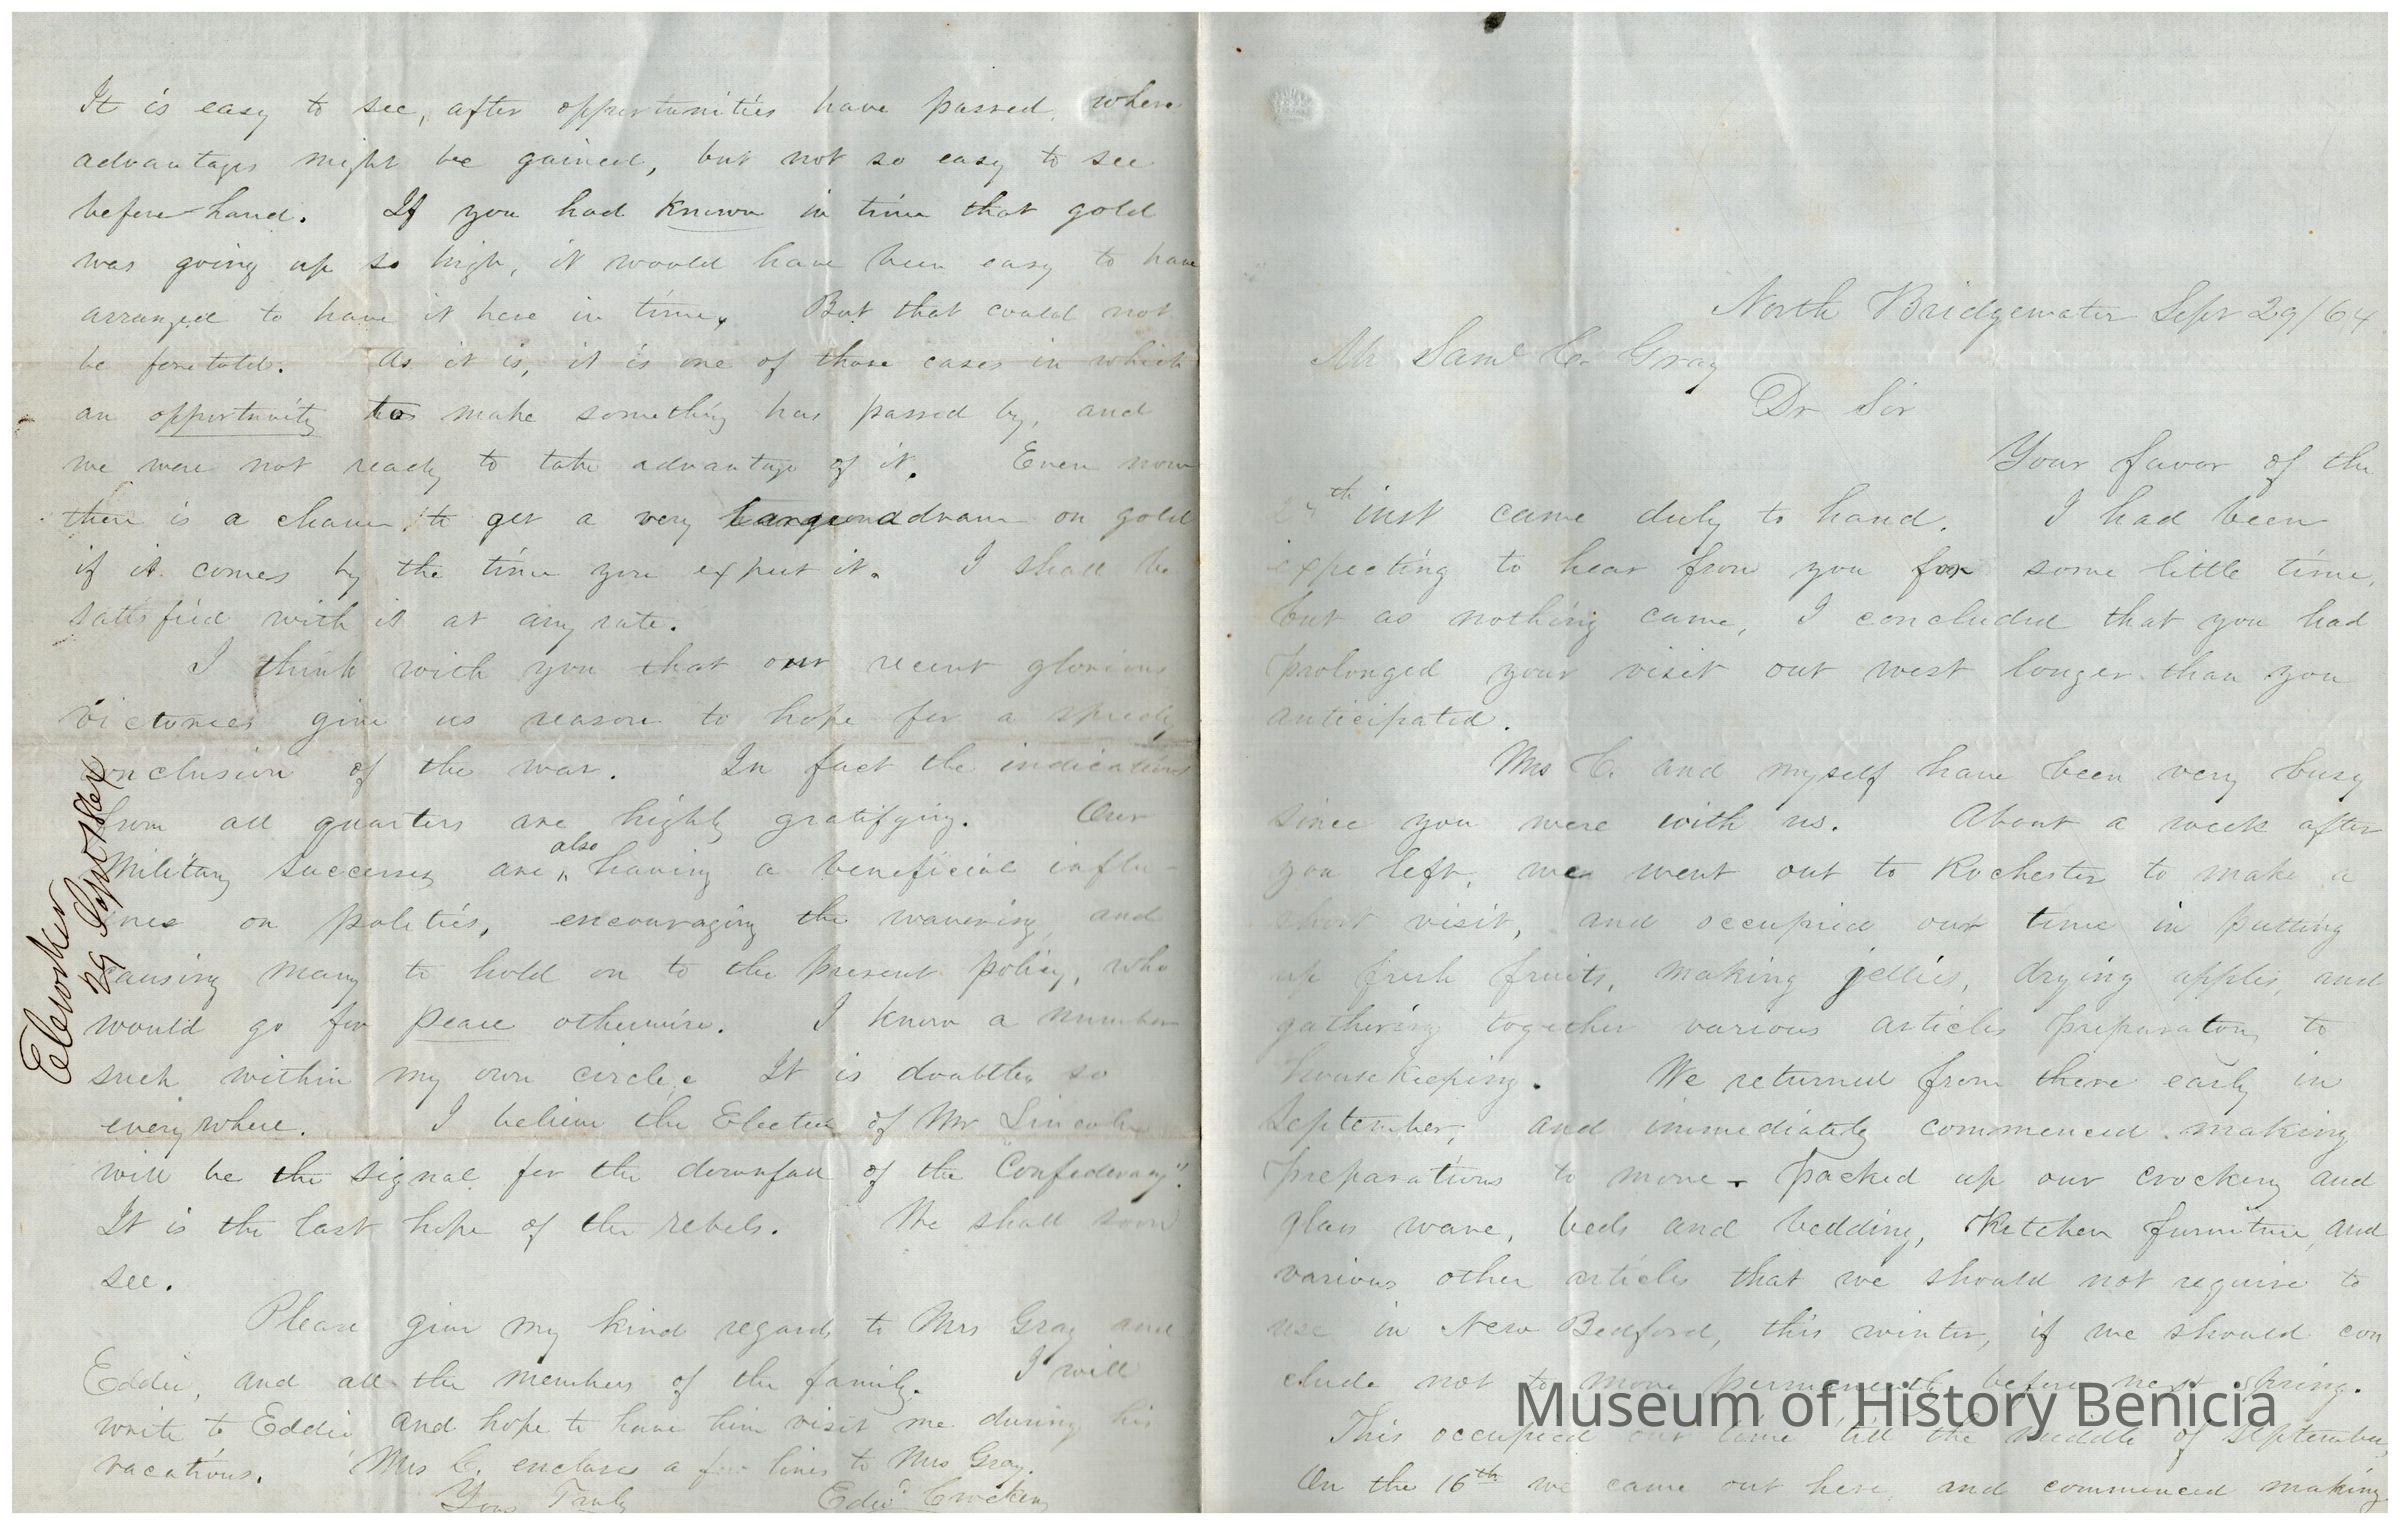 It is easy to see, after opportunities have passed, where
advantages might be gained, but not so easy to see
before hand. If you had known in time that gold
was going up so high, it would have been easy to have
arranged to have it here in time, But that could not
be foretold. As it is, it is one of those cases in which
an opportunity to make something has passed by, and
we were not ready to take advantage of it. Even now
there is a chance to get a very large advance on gold
if it comes by the time you expect it. I shall be
satisfied with it at any rate.
I think with you that our recent glorious
victories give us reason to hope for a speedy
conclusion of the war. In fact the indications
from all quarters are highly gratifying. Our
Military successes are, also having a beneficial influ-
ence on politics, encouraging the wavering, and
causing many to hold on to the present policy, who
would go for peace otherwise. I know a number
such within my own circle. It is doubtless so
everywhere. I believe the Election of Mr Lincoln
will be the signal for the downfall of the "Confederacy".
It is the last hope of the rebels. We shall soon
see.
Please give my kind regards to Mrs Gray and
Eddie, and all the members of the family. I will
write to Eddie and hope to have him visit me during his
vacations. Mrs C. encloses a few lines to Mrs Gray.
Yours Truly Edwd Crocker
E Crocker
29 Sept 1864
North Bridgewater Sept 29/64
Mr Saml C. Gray
Dr Sir
Your favor of the
th inst came duly to hand. I had been
expecting to hear from you for some little time,
but as nothing came, I concluded that you had
prolonged your visit out west longer than you
anticipated.
Mrs C. and myself have been very busy
since you were with us. About a week after
you left, we went out to Rochester to make a
short visit, and occupied our time in putting
up fresh fruits, making jellies, drying apples, and
gathering together various articles preparatory to
housekeeping. We returned from there early in
September, and immediately commenced making
preparations to move - packed up our crockery and
glass ware, beds and bedding, Kitchen furniture, and
various other articles that we should not require to
use in New Bedford, this winter, if we should con
clude not to move permanently before next spring.
This occupied our time till the middle of September,
On the 16th we came out here, and commenced making
Museum of History Benicia